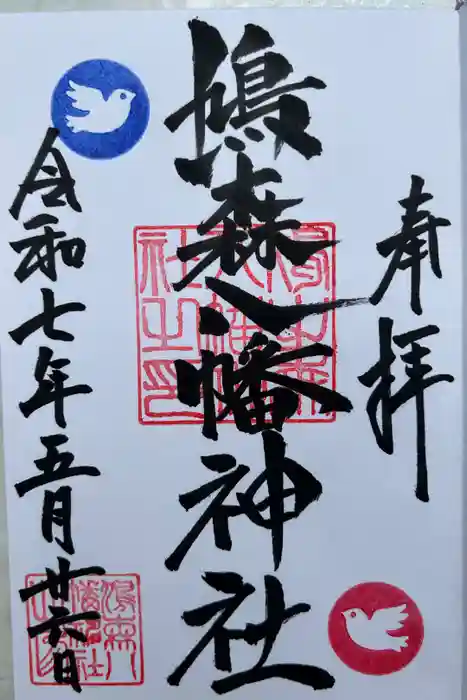 奉拝
鳩森八幡神社
令和七年五月廿六日
鳩森八幡神社之印
鳩森八幡神社之印